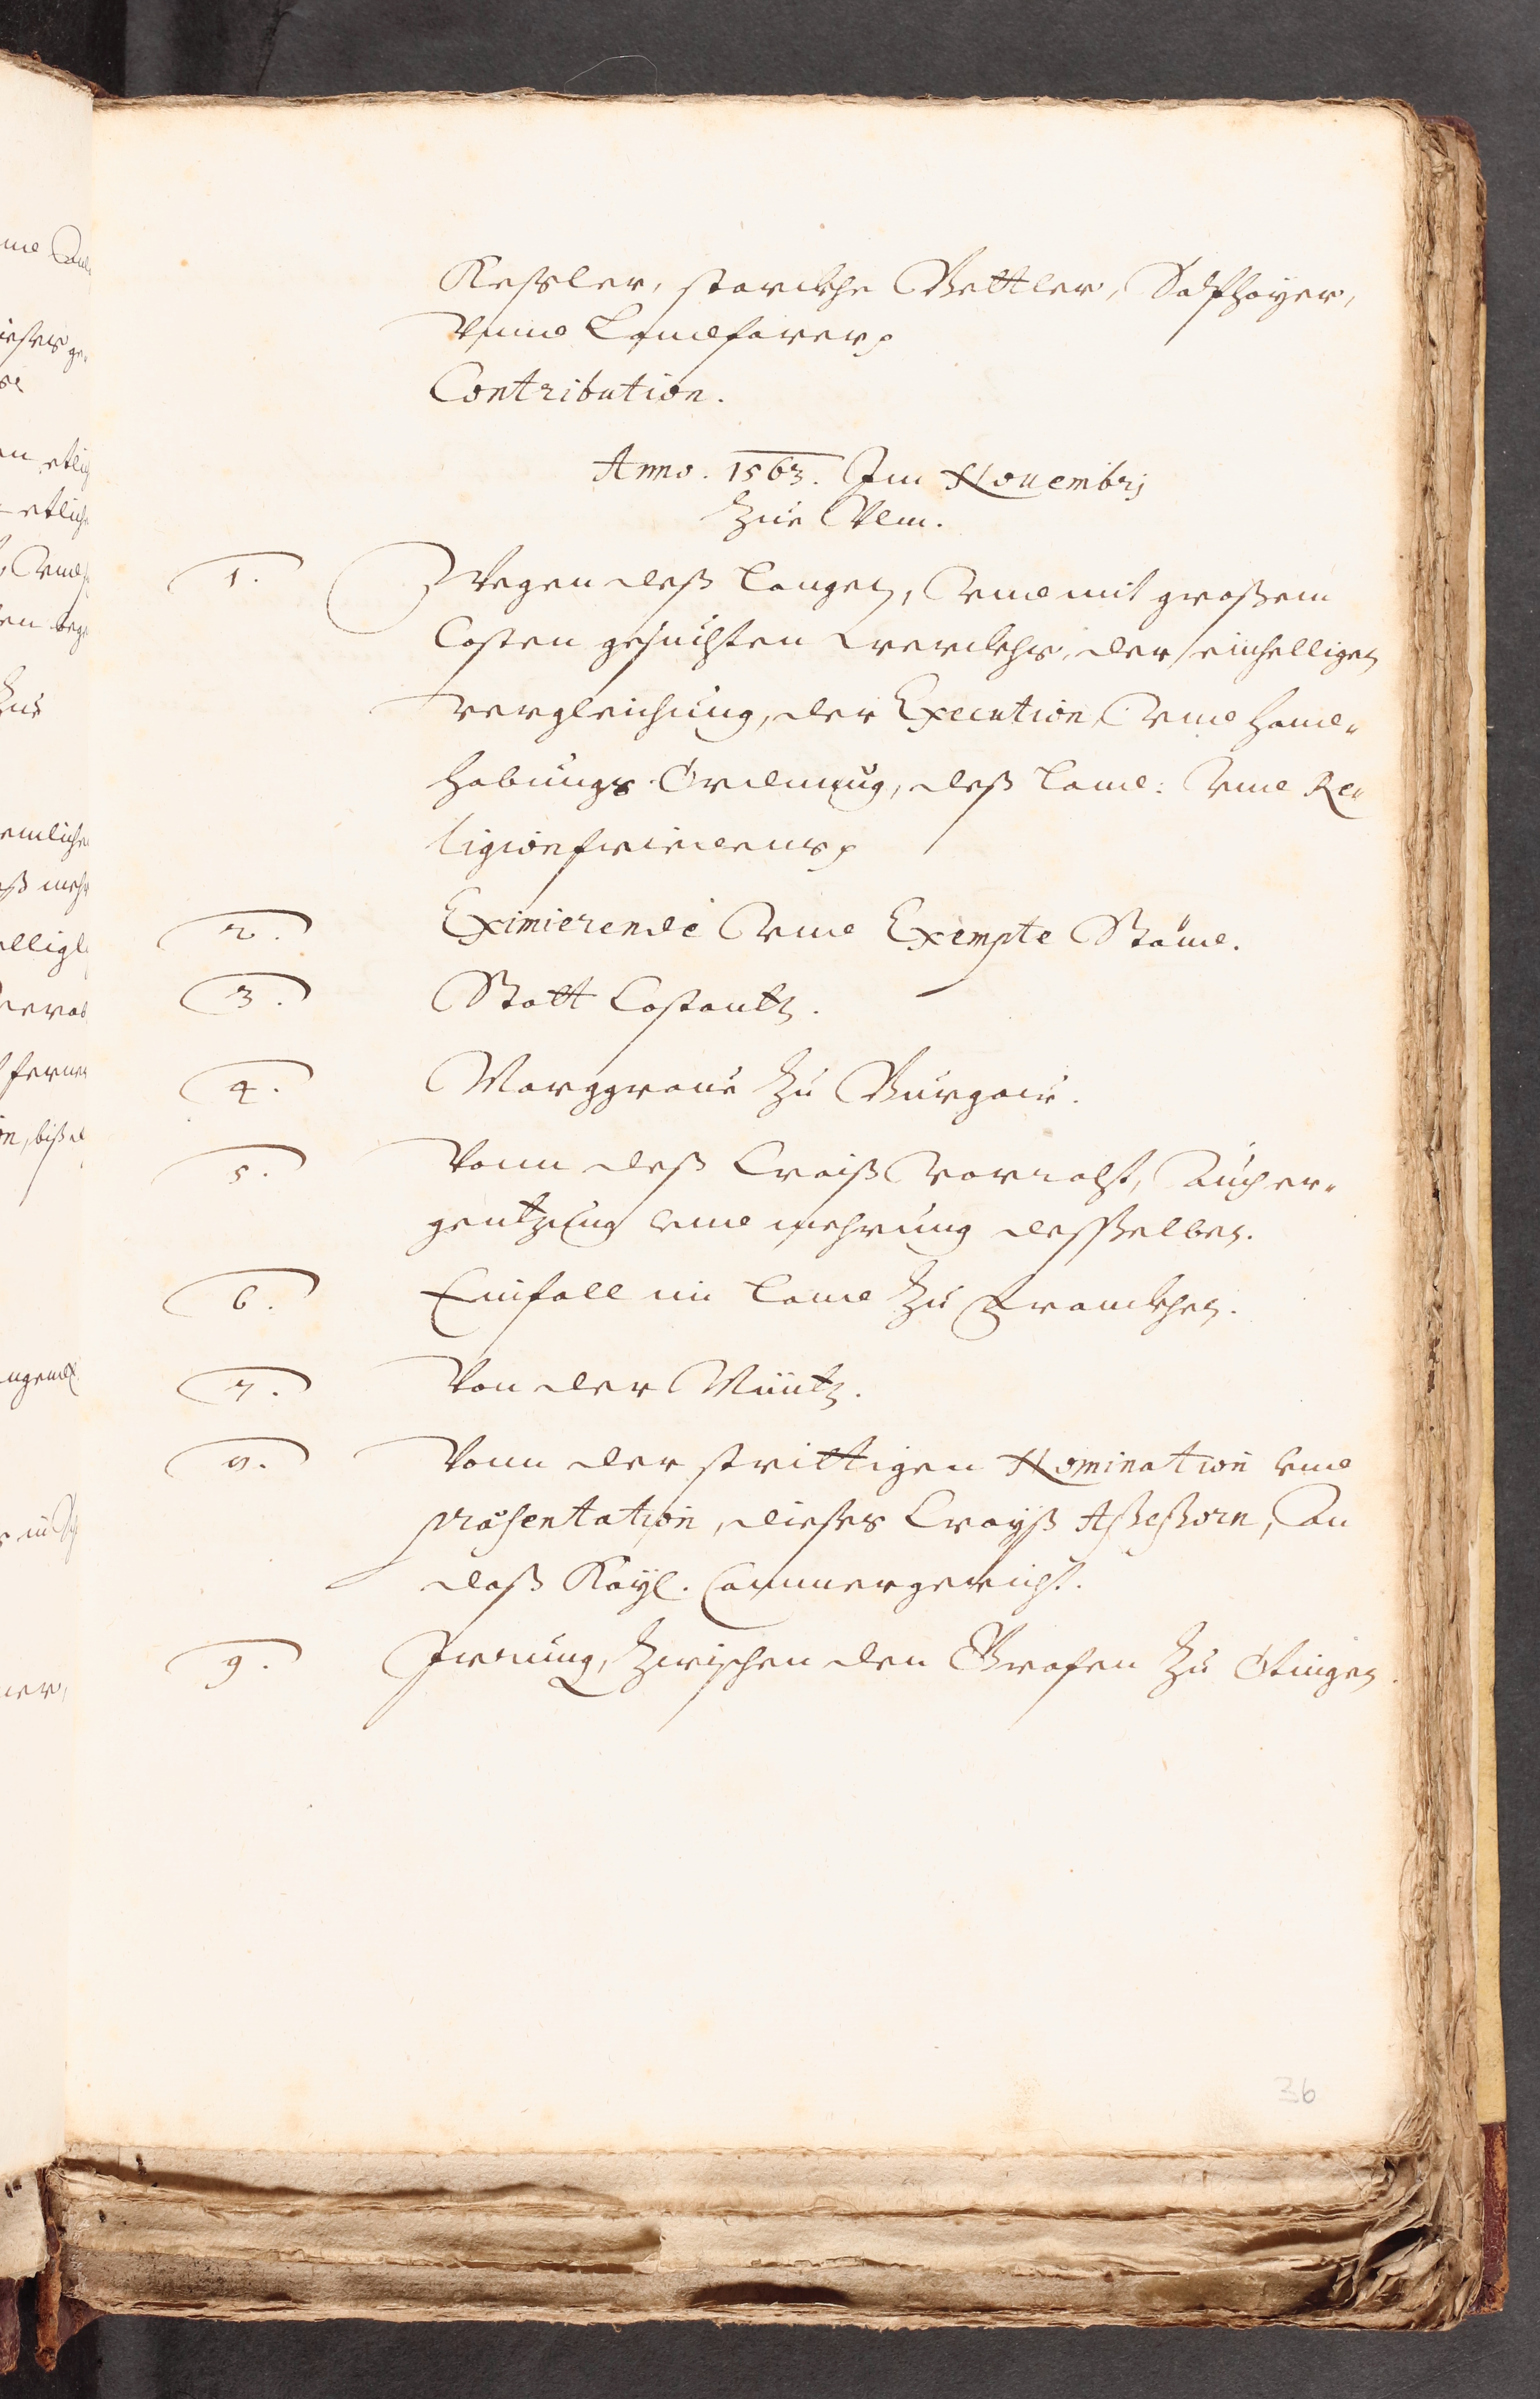 Kessler, starckhe Bettler, Saffoyer,
Vnnd Landfarer
Contribution.
Anno. 1563. Im Nouembrj
Zue Vlm.
1. Wegen deß langen, Vnnd mit großem
Costen gesuchten werckhs, der einhelligen
vergleichung, der Execution Vnnd Hand-
habungs Ordnung, deß land: Vnnd Re-
ligionfriedens
2. Eximierende Vnnd Exempte Ständ.
3. Statt Costantz.
4. Marggraue zu Burgau.
5. Vonn deß Craiß Vorraht, Auch er-
gentzung vnnd mehrung desselben.
6. Einfall im land zu Franckhen.
7. Von der Müntz.
8. Vonn der strittigen Nomination vnnd
præsentation, dieses Crayß Aßeßorn, An
daß Kayl. Cammergericht.
9. Irrung, Zwischen den Grafen zu Ötingen.
36